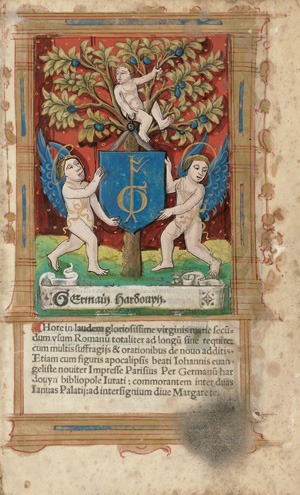 Germain Hardouyn
Hore in laudem gloriosissime virginis marie secū
dum vsum Romanū totaliter ad longū sine require:
cum multis suffragijs & orationibus de nouo additis
Etiam cum figuris apocalipsis beati Iohannis euan
geliste nouiter Impresse Parisius Per Germanū har
douyn bibliopole Iurati: commorantem inter duas
Ianuas Palatij: ad intersignium diue Margarete.